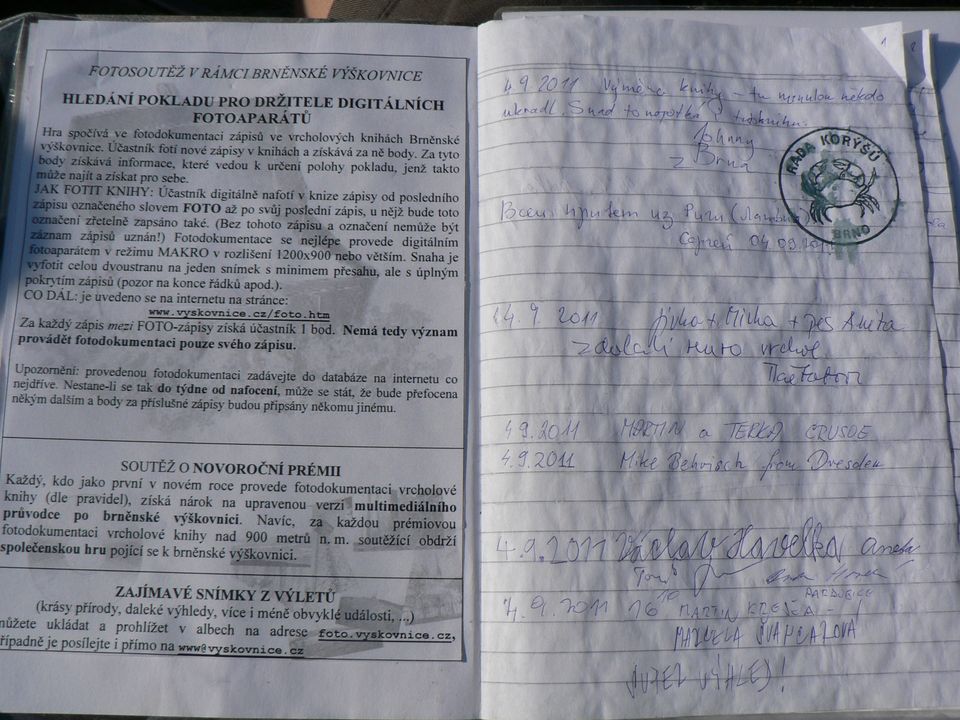 FOTOSOUTĚŽ V RÁMCI BRNĚNSKÉ VÝŠKOVNICE
HLEDÁNÍ POKLADU PRO DRŽITELE DIGITÁLNÍCH
FOTOAPARÁTŮ
Hra spočívá ve fotodokumentaci zápisů ve vrcholových knihách Brněnské
výškovnice. Účastník fotí nové zápisy v knihách a získává za ně body. Za tyto
body získává informace, které vedou k určení polohy pokladu, jenž takto
může najít a získat pro sebe.
JAK FOTIT KNIHY: Účastník digitálně nafotí v knize zápisy od posledního
zápisu označeného slovem FOTO až po svůj poslední zápis, u nějž bude toto
označení zřetelně zapsáno také. (Bez tohoto zápisu a označení nemůže být
záznam zápisů uznán!) Fotodokumentace se nejlépe provede digitálním
fotoaparátem v režimu MAKRO v rozlišení 1200x900 nebo větším. Snaha je
vyfotit celou dvoustranu na jeden snímek s minimem přesahu, ale s úplným
pokrytím zápisů (pozor na konce řádků apod.).
CO DÁL: je uvedeno se na internetu na stránce:
www.vyskovnice.cz/foto.htm
Za každý zápis mezi FOTO-zápisy získá účastník 1 bod. Nemá tedy význam
provádět fotodokumentaci pouze svého zápisu.
Upozornění: provedenou fotodokumentaci zadávejte do databáze na internetu co
nejdříve. Nestane-li se tak do týdne od nafocení, může se stát, že bude přefocena
někým dalším a body za příslušné zápisy budou připsány někomu jinému.
SOUTĚŽ O NOVOROČNÍ PRÉMII
Každý, kdo jako první v novém roce provede fotodokumentaci vrcholové
knihy (dle pravidel), získá nárok na upravenou verzi multimediálního
průvodce po brněnské výškovnici. Navíc, za každou prémiovou
fotodokumentaci vrcholové knihy nad 900 metrů n. m. soutěžící obdrží
společenskou hru pojící se k brněnské výškovnici.
ZAJÍMAVÉ SNÍMKY Z VÝLETŮ
(krásy přírody, daleké výhledy, více i méně obvyklé události, ...)
můžete ukládat a prohlížet v albech na adrese foto.vyskovnice.cz,
případně je posílejte i přímo na www@vyskovnice.cz
1
2
4.9.2011 Výměna knihy - tu minulou někdo
ukradl. Snad to
Johnny
z Brna
RADA KORÝŠŮ
BRNO
04.09.2011
4.9.2011 Jirka + Mirka + pes Anita
zdolali tuto vrchol.
4.9.2011 MARTIN a TERKA CRUSOE
4.9.2011 Mike Behrisch from Dresden
4.9.2011 Václav Havelka
PARDUBICE
7.9.2011 16 10 MARTIN
MARCELA
SUPER VÝHLED!